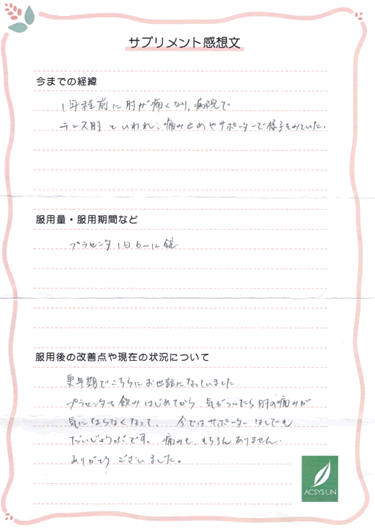 サプリメント感想文
今までの経緯
1年程前に肘が痛くなり、病院で
テニス肘といわれ、痛み止めやサポーターで様子をみていた。
服用量・服用期間など
プラセンタ 1日6〜12錠
服用後の改善点や現在の状況について
更年期でこちらにお世話になっていました
プラセンタを飲みはじめてから 気がついたら肘の痛みが
気にならなくなって、 今ではサポーターなしでも
だいじょうぶです。痛みも、もちろんありません。
ありがとうございました。
ACSYSUN